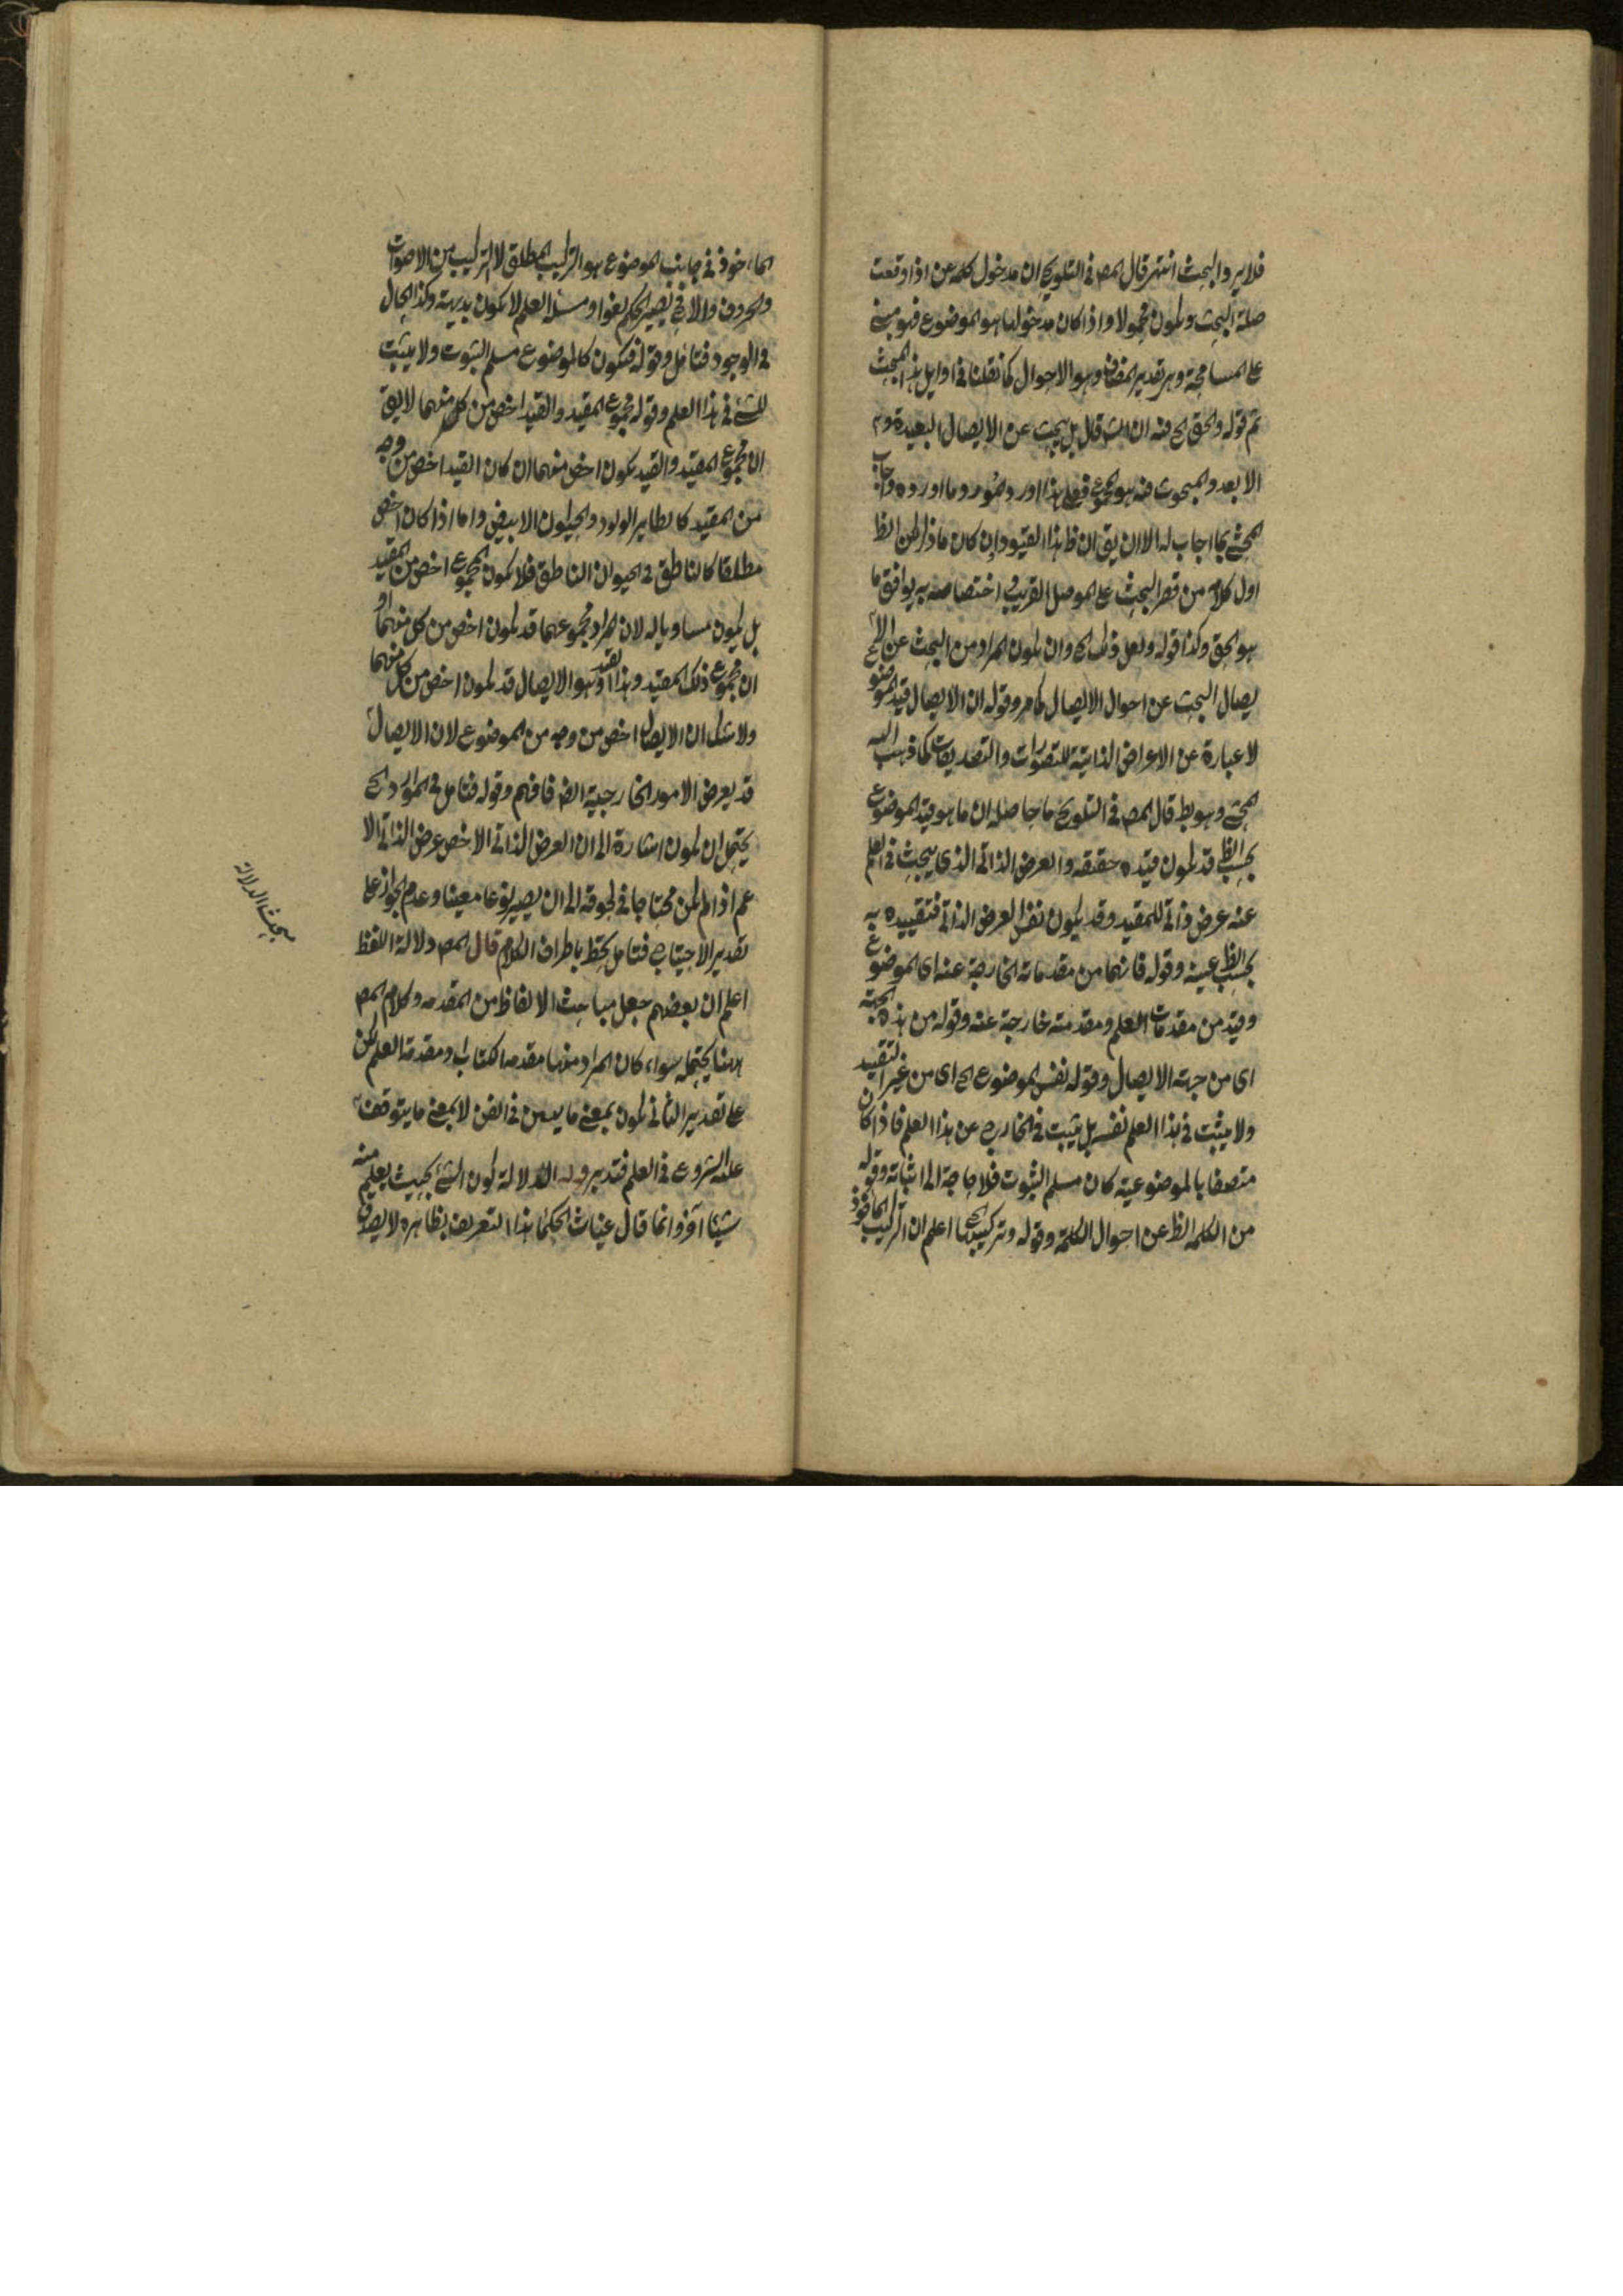 فلا يرد البحث انتهر قال المصـ في التلويح ان مدخول كلمه عن اذا وقعت
صلة البحث ويكون محمولا واذا كان مدخولها هو الموضوع فهو مبنے
علے المسامحة وهر تقدير المضاف وهو الاحوال كما نقلنا في اوايل هذا المبحث
ثم قوله والحق الخ فيه ان الشـ قال بل يبحث عن الايصال البعيدة و
الابعد والمبحوث فيه هو المجموع فعلے هذا اورد المورد وما اورده واجاب
المحشے بما اجاب له الا ان يق ان ظ هذا القيود وان كان ما ذكر لكن الظ
اول كلام من قصر البحث علے الموصل القريب واختصاصه به يوافق ما
هو الحق وكذا قوله ولعل ذلك الخ وان يكون المراد من البحث عن الا الخ
يصال البحث عن احوال الايصال كما مر وقوله ان الايصال قيد الموضوع
لا عبارة عن الاعراض الذاتية للتصورات والتصديقات كما ذهب اليه
المحشے وهو بط قال المصـ في التلويح ما حاصله ان ما هو قيد الموضوع
بحسب الظ قد يكون قيده حقيقه والعرض الذاتي الذي يبحث في العلم
عنه عرض ذاتي للمقيد وقد يكون نفس العرض الذاتي فتقييده به
بحسب الظ عينه وقوله فانهما من مقدماته الخارجة عنه اى الموضوع
وقيد من مقدمات العلم ومقدمته خارجة عنه وقوله من هذه الجهة
اى من جهة الايصال وقوله نفس الموضوع الخ اى من غير التقييد
ولا يثبت في هذا العلم نفسه بل يثبت في الخارج عن هذا العلم فاذا كان
متصفا بالموضوعية كان مسلم الثبوت فلا حاجة الى اثباته وقوله
من الكلمه الظ عن احوال الكلمة وقوله وتركيبها الخ اعلم ان التركيب الماخوذ
الماخوذ في جانب الموضوع هو التركيب المطلق لا التركيب من الاصوات
والحروف والا في يصير الحكم لغوا ومسئلة العلم لا يكون بديهية وكذا الحال
في الوجود فتامل وقوله فيكون كالموضوع مسلم الثبوت ولا يثبت
للشے في هذا العلم وقوله مجموع المقيد والقيد اخص من كل منهما لا يق
ان مجموع المقيد والقيد يكون اخص منهما ان كان القيد اخص من وجه
من المقيد كالطاير الولود والحيوان الابيض واما اذا كان اخص
مطلقا كالناطق في الحيوان الناطق فلا يكون المجموع اخص من المقيد
بل يكون مساويا له لان المراد مجموعهما قد يكون اخص من كل منهما او
ان مجموع ذلك المقيد وهذا القيد وهو الايصال قد يكون اخص من كل منهما
ولا شك ان الايصال اخص من وجه من الموضوع لان الايصال
قد يعرض الامور الخارجية ايضا فافهم وقوله فتامل في الموارد الخ
يحتمل ان يكون اشارة الى ان العرض الذاتي الاخص عرض الذاتي الا
عم اذا لم يكن محتاجا في لحوقه الى ان يصير نوعا معينا وعدم الجواز علے
تقدير الاحتياج فتامل تحظ باطراف الكلام قال المصـ دلالة اللفظ
اعلم ان بعضهم جعل مباحث الالفاظ من المقدمه وكلام المصـ
ههنا يحتمله سواء كان المراد منها مقدمه الكتاب او مقدمة العلم لكن
علے تقدير الثاني يكون بمعنے ما يعين في الفن لا بمعنے ما يتوقف
عليه الشروع في العلم فتدبر قوله الدلالة كون الشئ بحيث يعلم منه
شيئا آخر وانما قال غياث الحكما هذا التعريف بظاهره لا يصدق
مبحث الدلالة